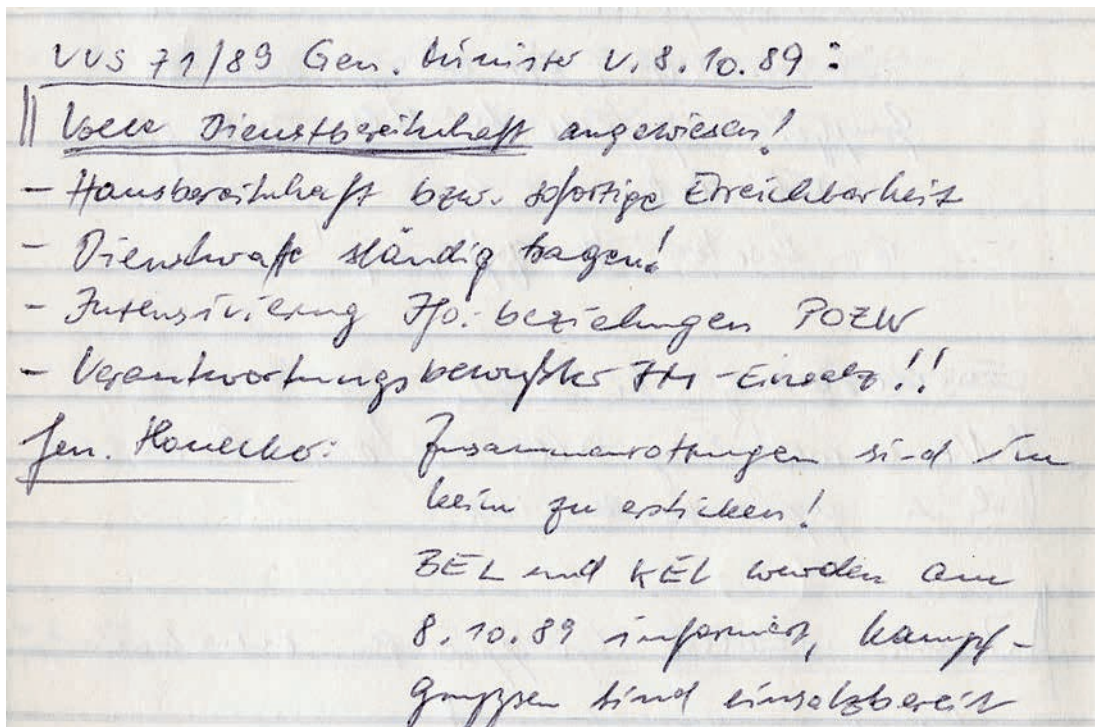 VVS 71/89 Gen. Minister v. 8.10.89:
Volle Dienstbereitschaft angewiesen!
- Hausbereitschaft bzw. sofortige Erreichbarkeit
- Dienstwaffe ständig tragen!
- Intensivierung Ifo.-beziehungen POZW
- Verantwortungsbewußter IM-Einsatz!!
Gen. Honecker: Zusammenrottungen sind im
Keim zu ersticken!
BEL und KEL wurden am
8.10.89 informiert, Kampf-
gruppen sind einsatzbereit